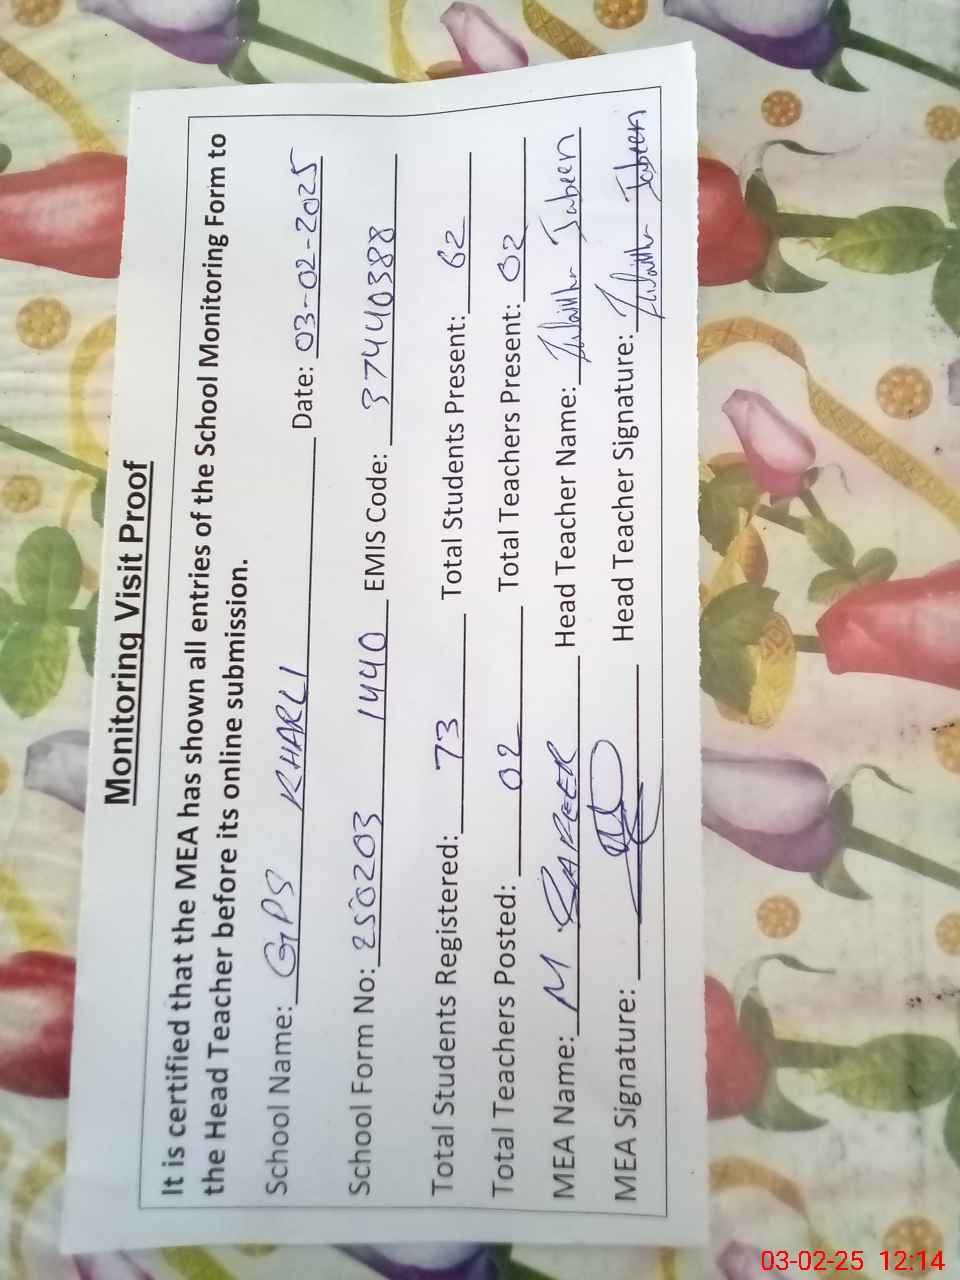 Monitoring Visit Proof
It is certified that the MEA has shown all entries of the School Monitoring Form to
the Head Teacher before its online submission.
School Name: GPS KHARLI Date: 03-02-2025
School Form No: 250203 1440 EMIS Code: 37440388
Total Students Registered: 73 Total Students Present: 62
Total Teachers Posted: 02 Total Teachers Present: 02
MEA Name: M Head Teacher Name: Jabeen
MEA Signature: Head Teacher Signature: Jabeen
03-02-25 12:14